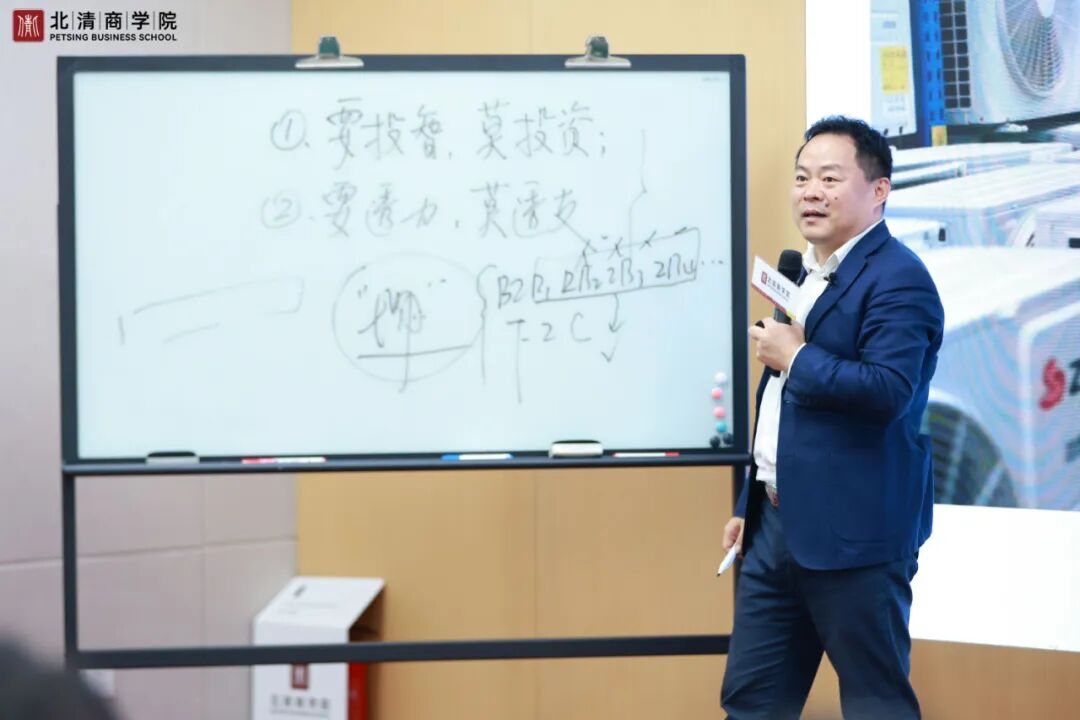 北清商学院
PETSING BUSINESS SCHOOL
①.要投智,莫投资;
②.要透力,莫透支
B2B₁2B₂2B₃2B₄...
T-2C
北清商学院